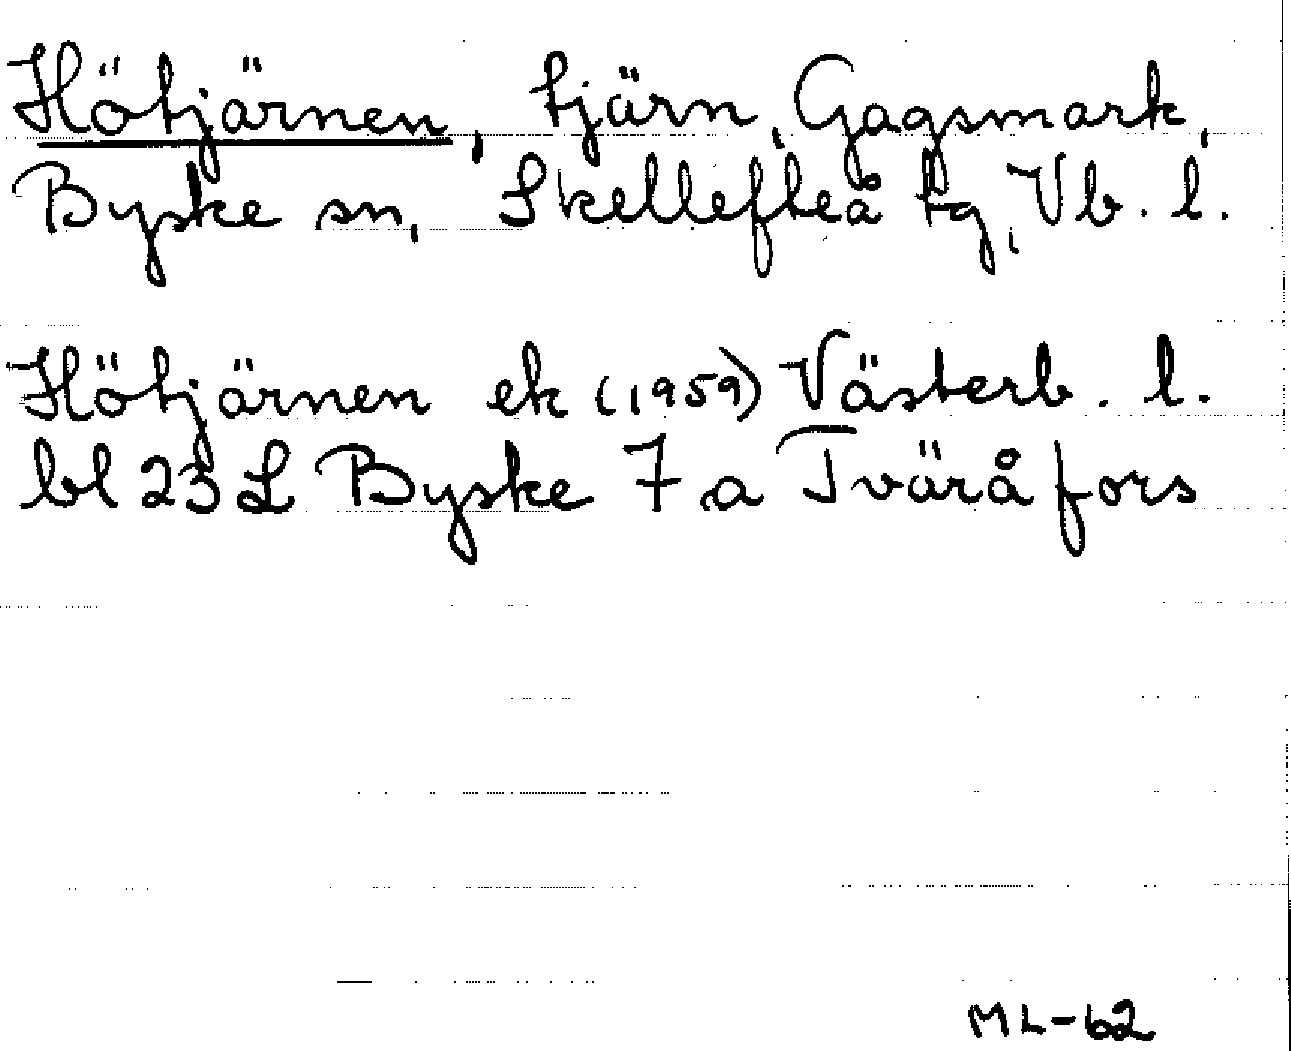 Hötjärnen, tjärn, Gagsmark,
Byske sn, Skellefteå tg, Vb. l.
Hötjärnen ek (1959) Västerb. l.
bl 23 L Byske 7 a Tväråfors
ML-62